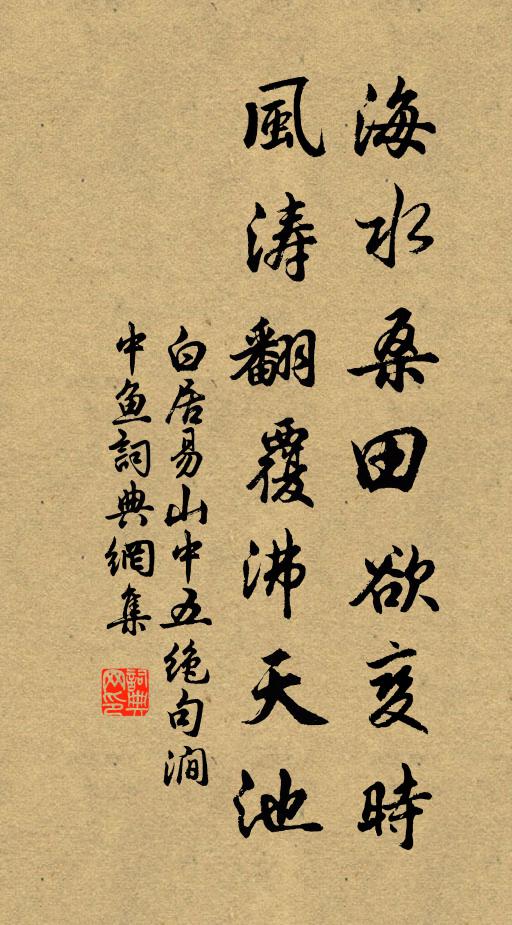 海水桑田欲变時
風涛翻覆沸天池
白居易山中五绝句澗
中鱼詞典網集
詞典网印